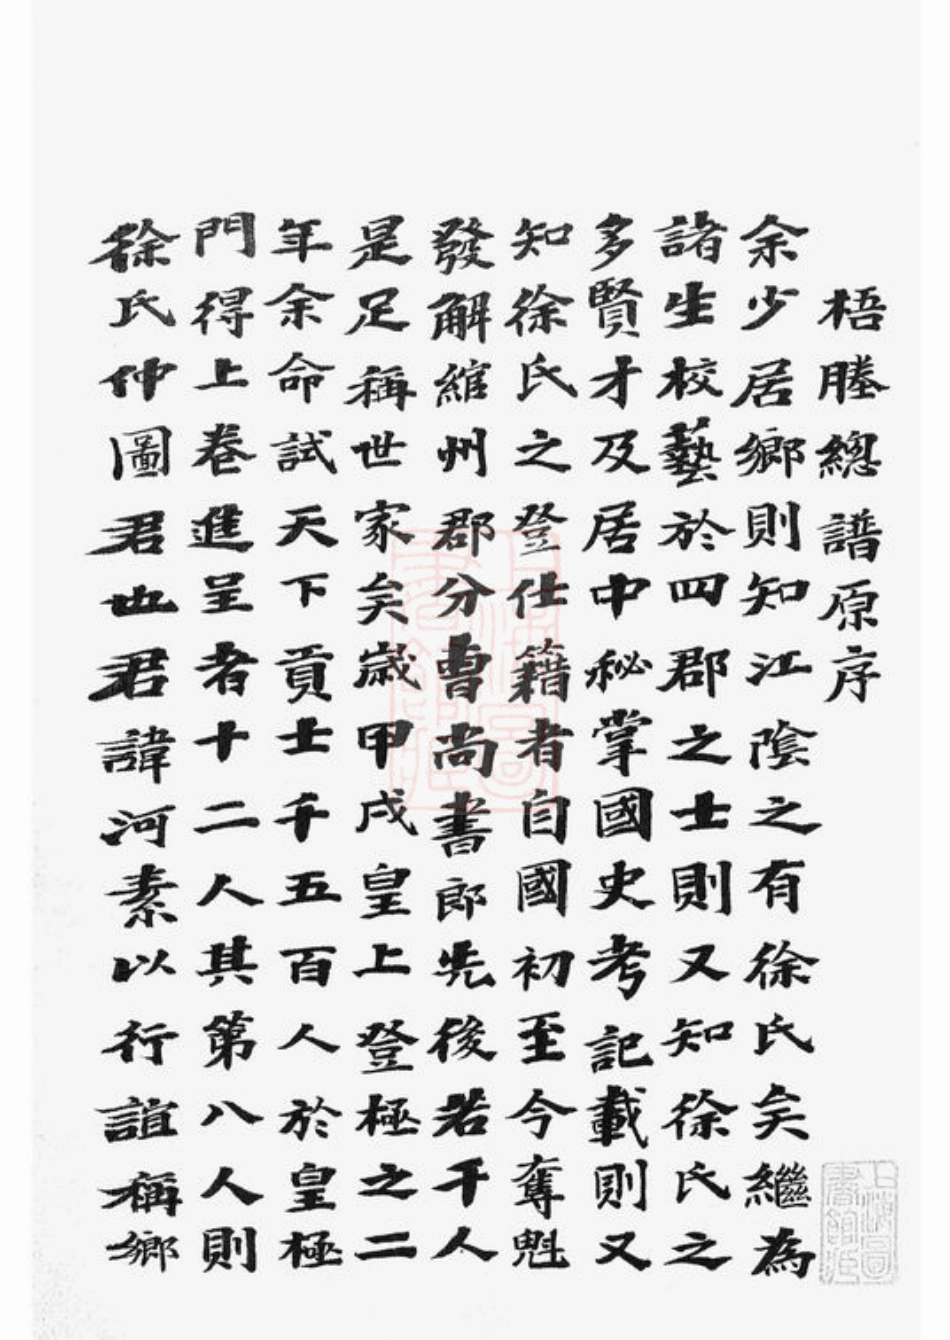 梧塍總譜原序
余少居鄉則知江陰之有徐氏矣繼為
諸生校藝於四郡之士則又知徐氏之
多賢才及居中秘掌國史考記載則又
知徐氏之登仕籍者自國初至今奪魁
發解綰州郡分曹尚書郎先後若干人
是足稱世家矣歲甲戌皇上登極之二
年余命試天下貢士千五百人於皇極
門得上卷進呈者十二人其第八人則
徐氏仲圖君也君諱河素以行誼稱鄉
上海圖書館藏
上海圖書館藏